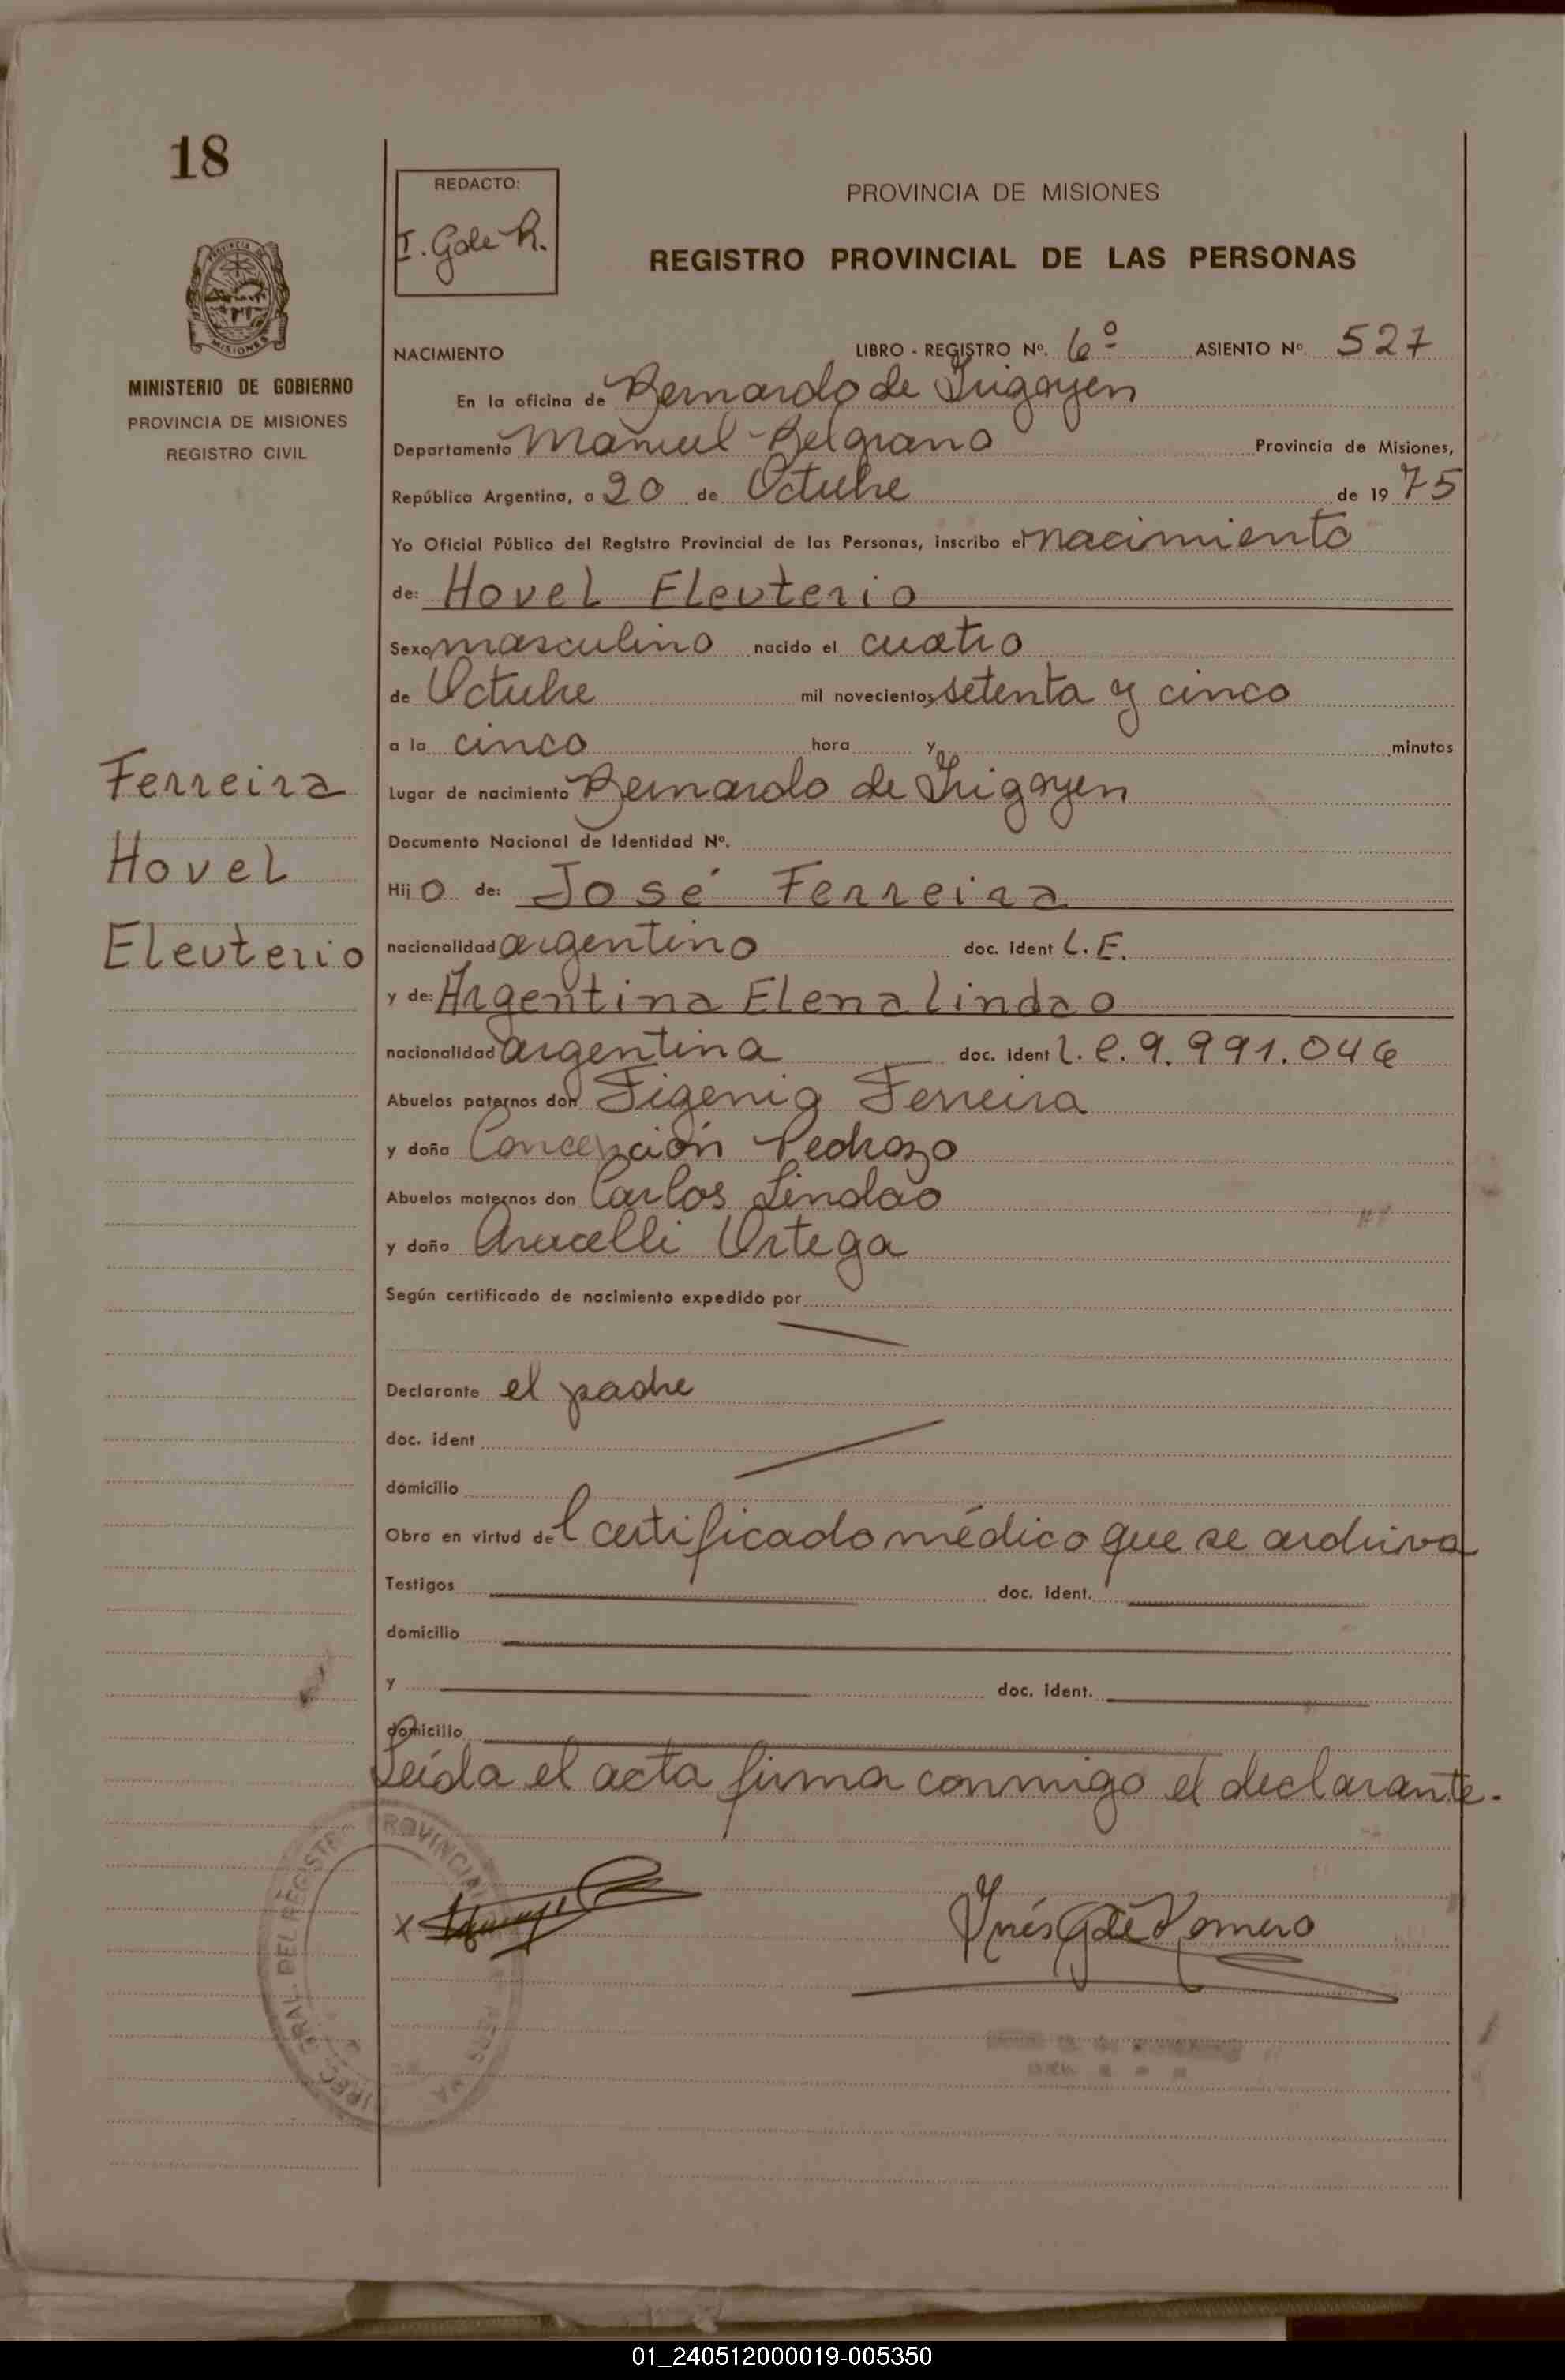 18
REDACTO:
I. G de R.
PROVINCIA DE MISIONES
REGISTRO PROVINCIAL DE LAS PERSONAS
PROVINCIA DE
MISIONES
MINISTERIO DE GOBIERNO
PROVINCIA DE MISIONES
REGISTRO CIVIL
NACIMIENTO LIBRO - REGISTRO Nº. 6º ASIENTO Nº. 527
En la oficina de Bernardo de Irigoyen
Departamento Manuel Belgrano Provincia de Misiones,
República Argentina, a 20 de Octubre de 1975
Yo Oficial Público del Registro Provincial de las Personas, inscribo el nacimiento
de: Hovel Eleuterio
Sexo masculino nacido el cuatro
de Octubre mil novecientos setenta y cinco
a la cinco hora y minutos
Ferreira
Hovel
Eleuterio
Lugar de nacimiento Bernardo de Irigoyen
Documento Nacional de Identidad Nº.
Hijo de: José Ferreira
nacionalidad argentino doc. ident L.E.
y de: Argentina Elena Lindao
nacionalidad argentina doc. ident L.C. 9.991.046
Abuelos paternos don Figenio Ferreira
y doña Concepción Pedrozo
Abuelos maternos don Carlos Lindao
y doña Aracelli Ortega
Según certificado de nacimiento expedido por
Declarante el padre
doc. ident
domicilio
Obra en virtud del certificado médico que se archiva
Testigos doc. ident.
domicilio
y doc. ident.
domicilio
Leída el acta firma conmigo el declarante.
DEL REGISTRO PROVINCIAL
X
Inés G de Romero
01_240512000019-005350